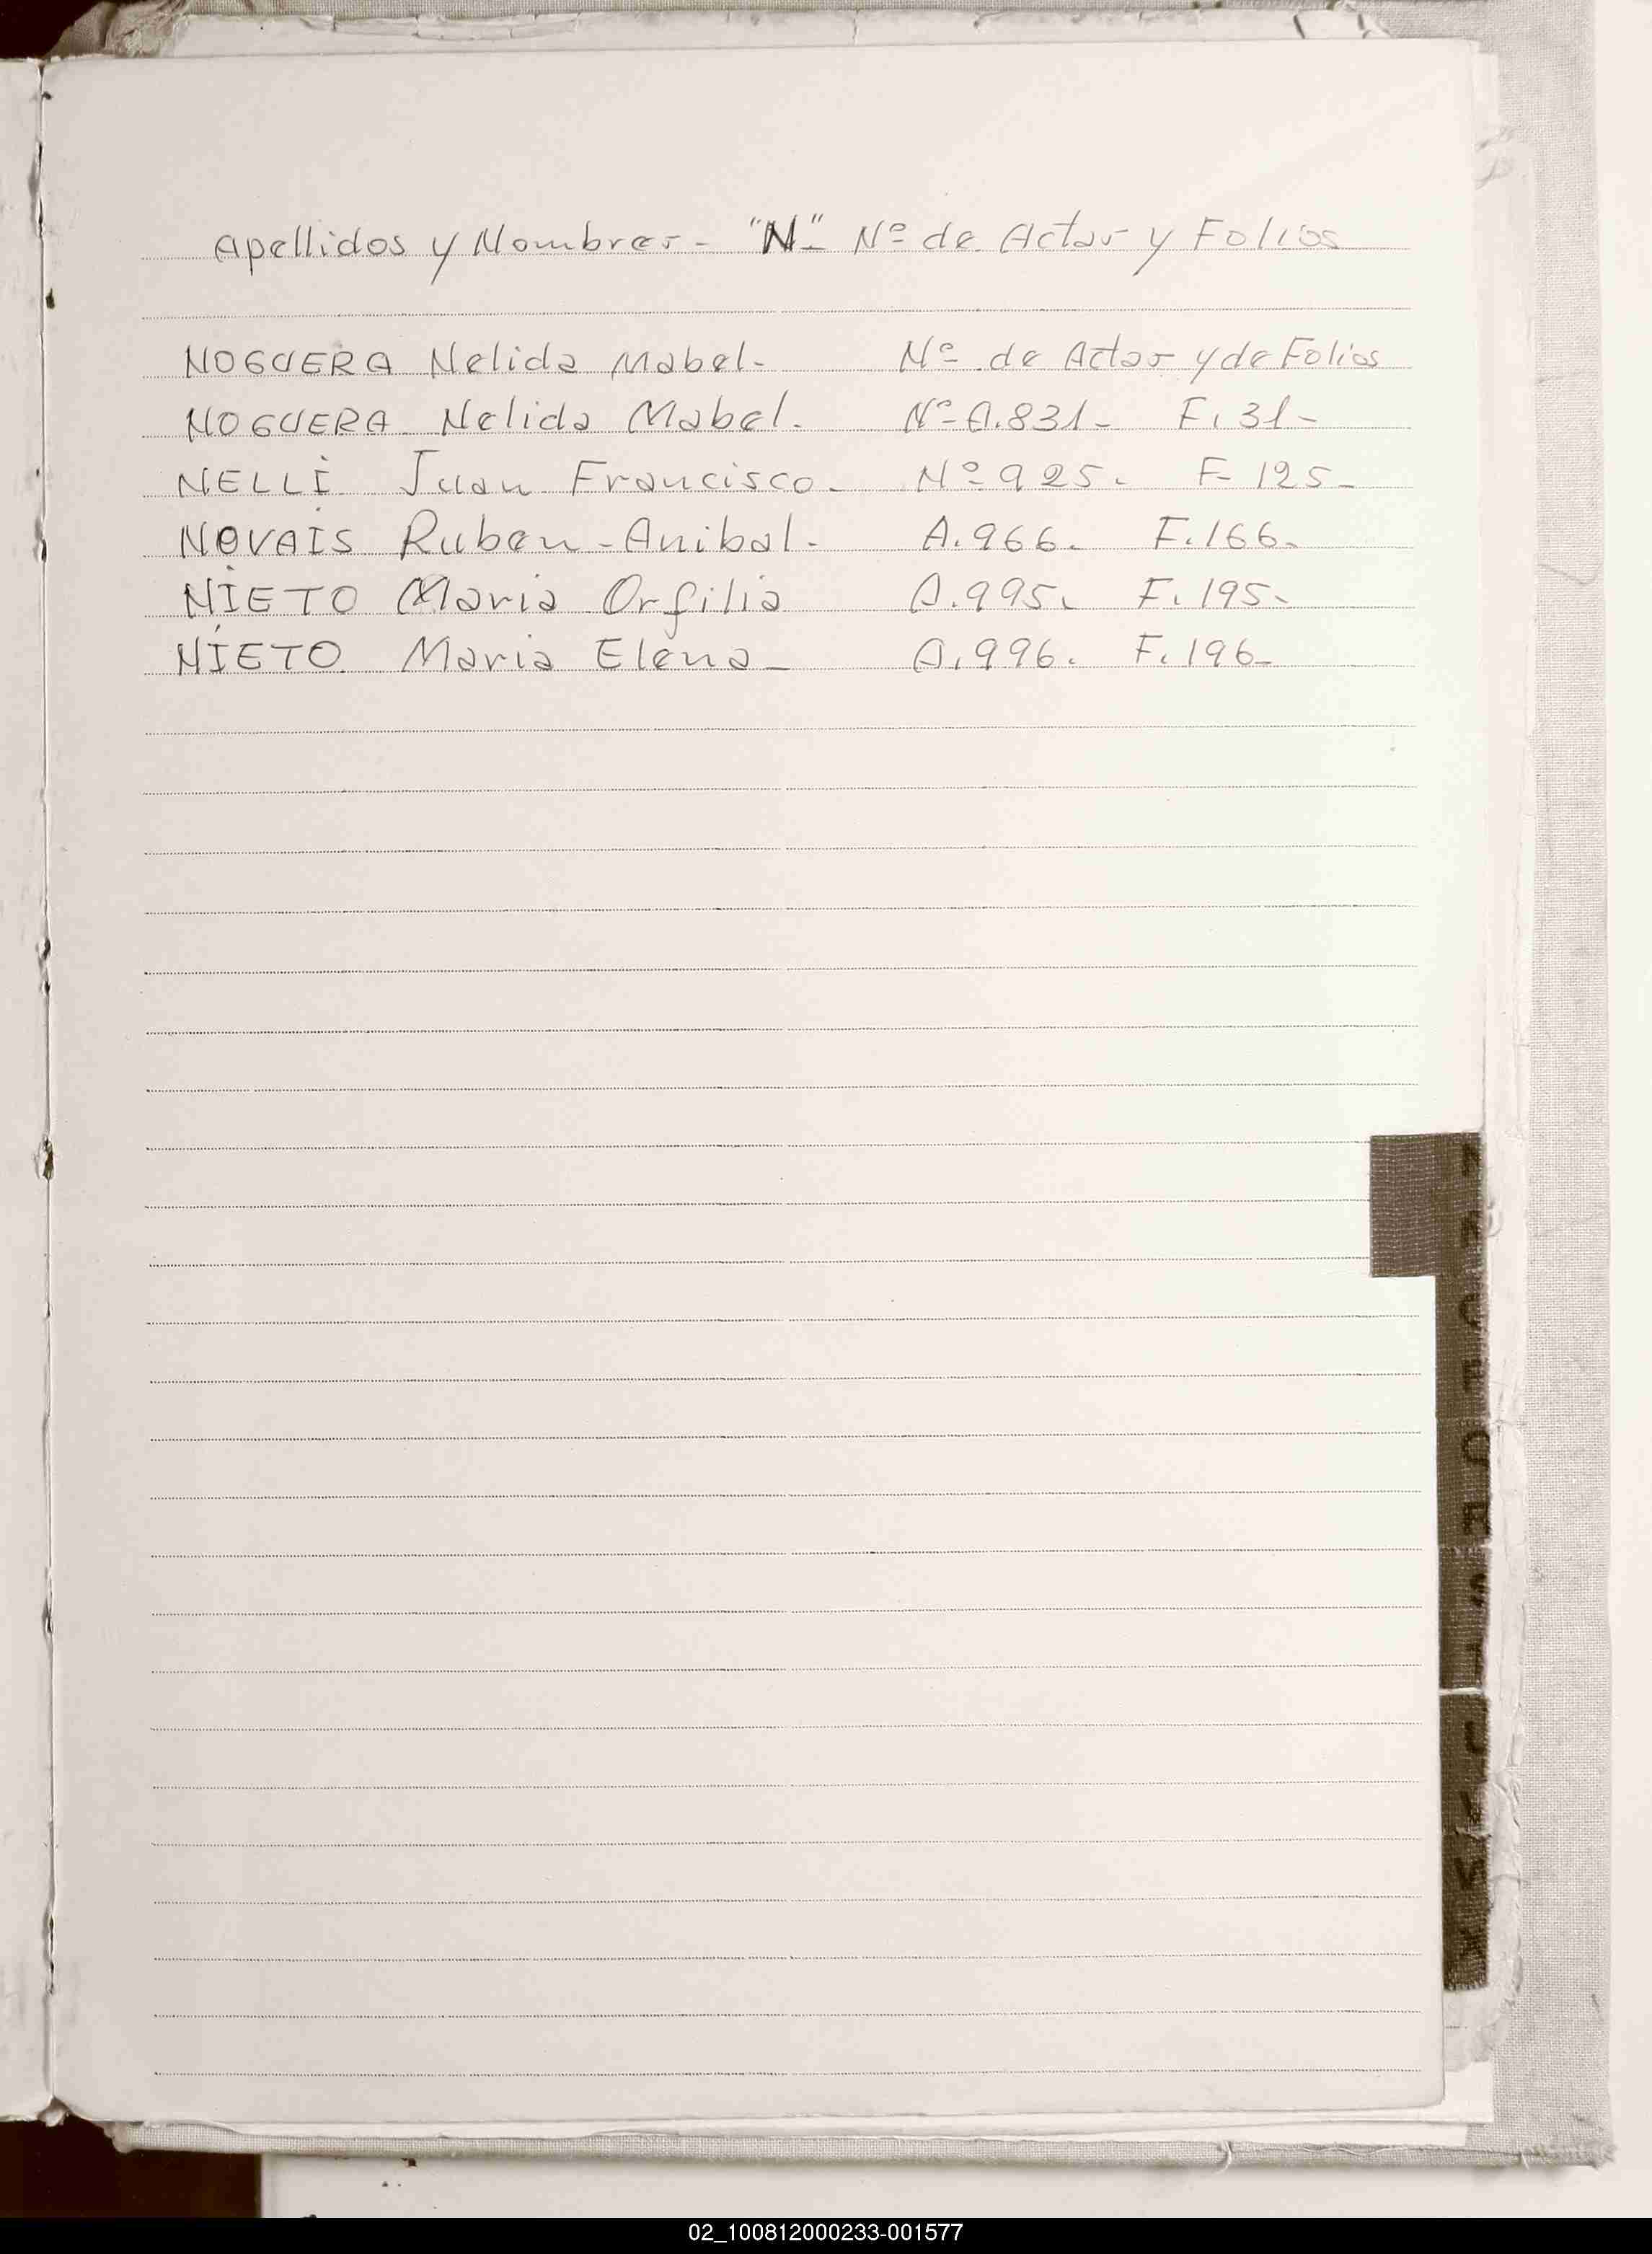 Apellidos y Nombres - "N" Nº de Actas y Folios
NOGUERA Nelida Mabel - Nº de Actas y de Folios
NOGUERA Nelida Mabel. Nº A.831 - F. 31 -
NELLI Juan Francisco - Nº 925. F- 125 -
NOVAIS Ruben - Anibal - A. 966. F. 166.
NIETO Maria Orfilia A. 995. F. 195.
NIETO Maria Elena - A. 996. F. 196 -
02_100812000233-001577